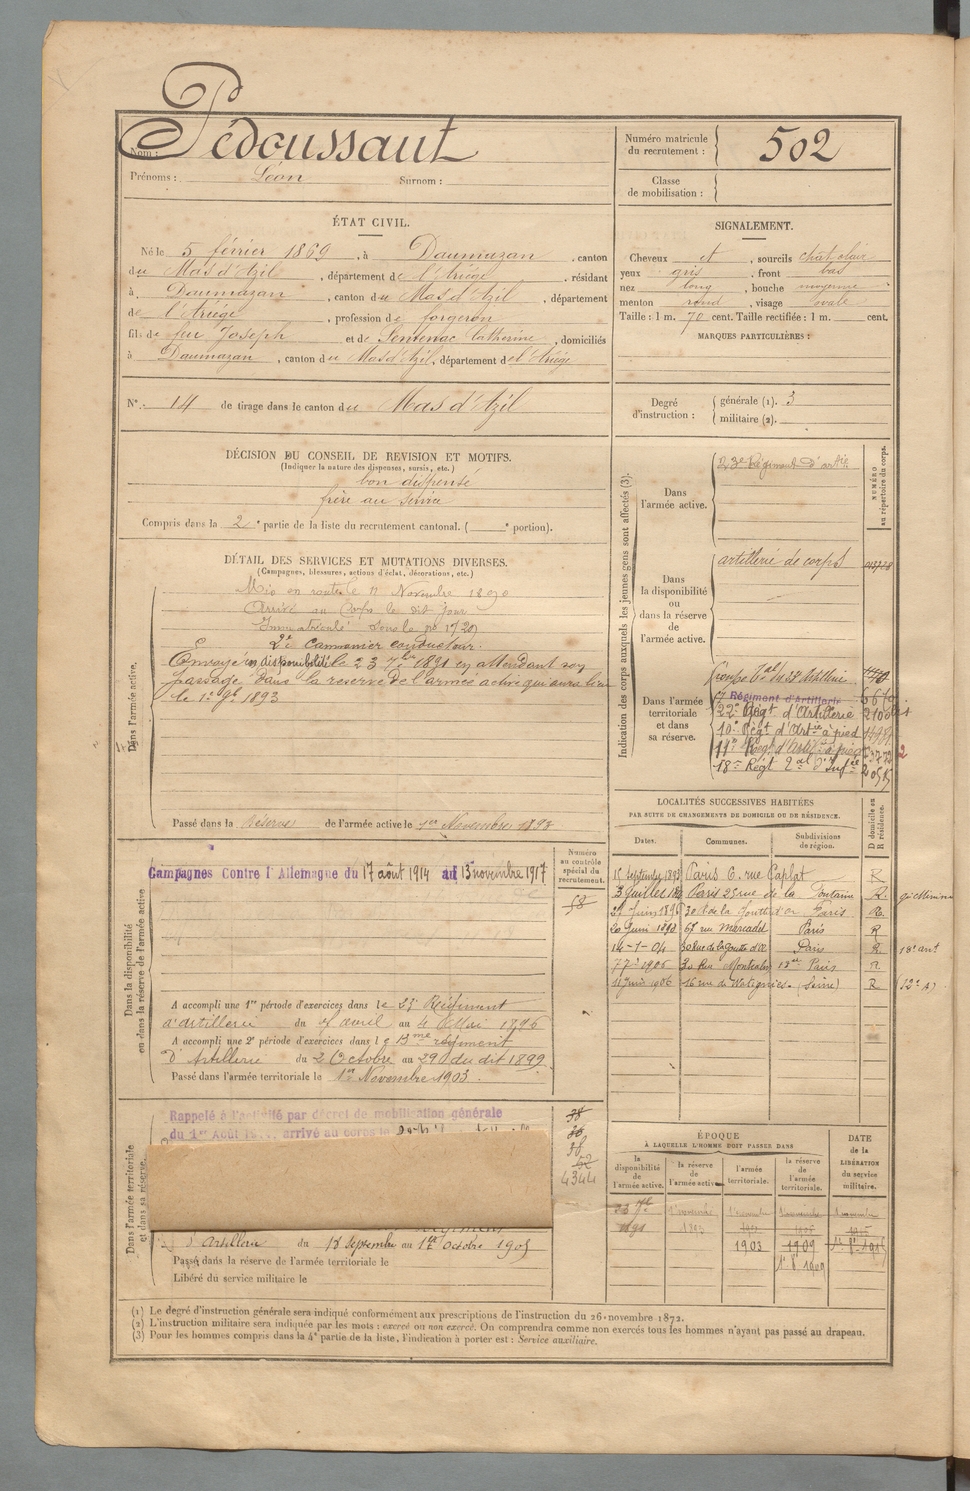 Nom : Pédoussaut
Prénoms : Léon Surnom :
Numéro matricule du recrutement : 502
Classe de mobilisation :
ÉTAT CIVIL.
Né le 5 février 1869, à Daumazan, canton
du Mas d'Azil, département de l'Ariège, résidant
à Daumazan, canton du Mas d'Azil, département
de l'Ariège, profession de forgeron
fils de feu Joseph et de Sentenac Catherine, domiciliés
à Daumazan, canton du Mas d'Azil, département de l'Ariège
N° 14 de tirage dans le canton du Mas d'Azil
SIGNALEMENT.
Cheveux et, sourcils chat clair
yeux gris, front bas
nez long, bouche moyenne
menton rond, visage ovale
Taille : 1 m. 70 cent. Taille rectifiée : 1 m. cent.
MARQUES PARTICULIÈRES :
Degré d'instruction : générale (1). 3
militaire (2).
DÉCISION DU CONSEIL DE REVISION ET MOTIFS.
(Indiquer la nature des dispenses, sursis, etc.)
bon dispensé
frère au service
Compris dans la 2e partie de la liste du recrutement cantonal. ( e portion).
DÉTAIL DES SERVICES ET MUTATIONS DIVERSES.
(Campagnes, blessures, actions d'éclat, décorations, etc.)
Dans l'armée active.
Mis en route le 11 Novembre 1890
Arrivé au Corps le dit jour
Immatriculé sous le no 1720
2e Cannonier conducteur
Envoyé en disponibilité le 23 7bre 1891 en attendant son
passage dans la réserve de l'armée active qui aura lieu
le 1er 9bre 1893
Passé dans la Réserve de l'armée active le 1er Novembre 1893
Indication des corps auxquels les jeunes gens sont affectés (3).
NUMÉRO au répertoire du corps.
Dans l'armée active.
23e Régiment d'artie
Dans la disponibilité ou dans la réserve de l'armée active.
artillerie de corps
Dans l'armée territoriale et dans sa réserve.
Groupe tal du 18 Artillerie
Régiment d'artillerie
22e Régt d'Artillerie 2100
10e Régt d'Artie à pied
11e Régt d'Artie à pied
18e Régt tal d'Infie
LOCALITÉS SUCCESSIVES HABITÉES
PAR SUITE DE CHANGEMENTS DE DOMICILE OU DE RÉSIDENCE.
Dates. Communes. Subdivisions de région. D domicile ou R résidence.
15 Septembre 1893 Paris 6. rue Caplat R
3 juillet Paris 25 rue de la Fontaine R.
27 Juin 1896 30 r de la Goutte d'or Paris R.
20 Juin 1898 67 rue Marcadet Paris R
14-1-04 30 Rue de la Goutte d'Or Paris R 18e arrt
1906 Rue Montcalm 18e Paris R
11 Juin 1906 16 rue de Wattignies (Seine) R (12e A)
Dans la disponibilité ou dans la réserve de l'armée active
Campagnes Contre l'Allemagne du 17 août 1914 au 13 novembre 1917
Numéro au contrôle spécial du recrutement.
58
A accompli une 1re période d'exercices dans le 23e Régiment
d'artillerie du 7 avril au 4 Mai 1896
A accompli une 2e période d'exercices dans le 13me régiment
d'Artillerie du 2 Octobre au 29 du dit 1899
Passé dans l'armée territoriale le 1er Novembre 1903.
Dans l'armée territoriale et dans sa réserve.
Rappelé à l'activité par décret de mobilisation générale
du 1er Août arrivé au corps le
38
36
38
52
4344
d'Artillerie du 18 Septembre au 1er Octobre 1905
Passé dans la réserve de l'armée territoriale le
Libéré du service militaire le
ÉPOQUE
À LAQUELLE L'HOMME DOIT PASSER DANS
la disponibilité de l'armée active. la réserve de l'armée active. l'armée territoriale. la réserve de l'armée territoriale.
DATE de la LIBÉRATION du service militaire.
23 7bre 1891
1 novembre 1893
1 novembre
1903
1 novembre
1909
1er 8bre 1909
1 novembre
(1) Le degré d'instruction générale sera indiqué conformément aux prescriptions de l'instruction du 26 novembre 1872.
(2) L'instruction militaire sera indiquée par les mots : exercé ou non exercé. On comprendra comme non exercés tous les hommes n'ayant pas passé au drapeau.
(3) Pour les hommes compris dans la 4e partie de la liste, l'indication à porter est : Service auxiliaire.